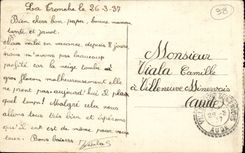 La Tronche le 26-3-37
Bien chers bon papa, bonne maman
tante et janot.
en vacances depuis 8 jours
nous n'avons pas beaucoup
profité car la neige tombe à
gros flocons malheureusement elle
ne tient pas aujourd'hui il pleut
quel temps! Malgré cela nous
allons tous très bien et espérons
qu'il en est de même pour vous
tous. Bons baisers
Monsieur
Viala Camille
à Villeneuve Minervois
(Aude)